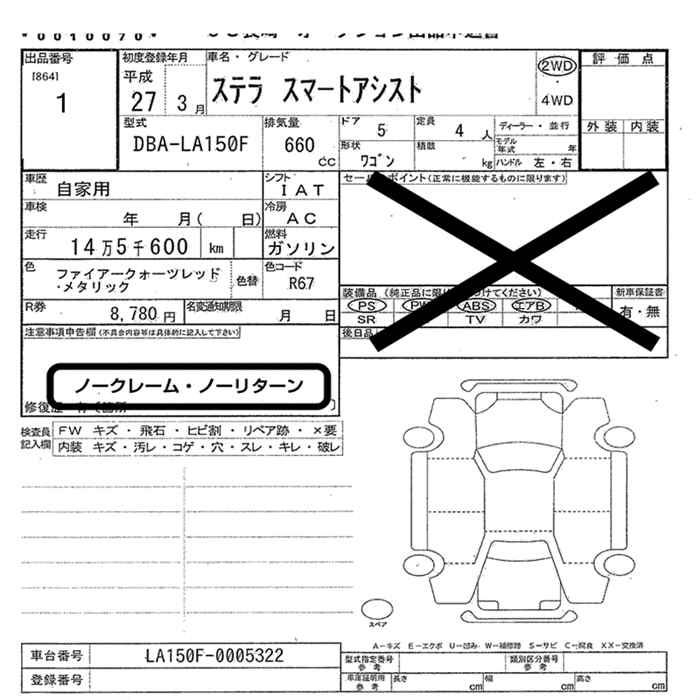 *0010070*
出品番号 初度登録年月 車名・グレード 評価点
[864] 平成 ステラ スマートアシスト 2WD
1 27 3月 ・ 4WD
型式 排気量 ドア 定員 ディーラー・並行 外装 内装
DBA-LA150F 660 cc 5 4人 モデル年式 年
形状 積載 ハンドル 左・右
ワゴン kg
車歴 自家用 シフト IAT セールスポイント(正常に機能するものに限ります)
車検 年 月( 日) 冷房 AC
走行 14万5千600 km 燃料 ガソリン
色 ファイアークォーツレッド・メタリック 色替 色コード R67
装備品 (純正品に限り つけてください) 新車保証書
R券 8,780円 名変通知期限 月 日 PS PW ABS エアB 有・無
SR TV カワ
注意事項申告欄(不具合内容等は具体的に記入して下さい) 後日品
ノークレーム・ノーリターン
修復歴
検査員記入欄 FW キズ・飛石・ヒビ割・リペア跡・×要
内装 キズ・汚レ・コゲ・穴・スレ・キレ・破レ
スペア
A-キズ E-エクボ U-凹み W-補修跡 S-サビ C-腐食 XX-交換済
車台番号 LA150F-0005322 型式指定番号 参考 類別区分番号 参考
登録番号 車庫証明用 参考 長さ cm 幅 cm 高さ cm